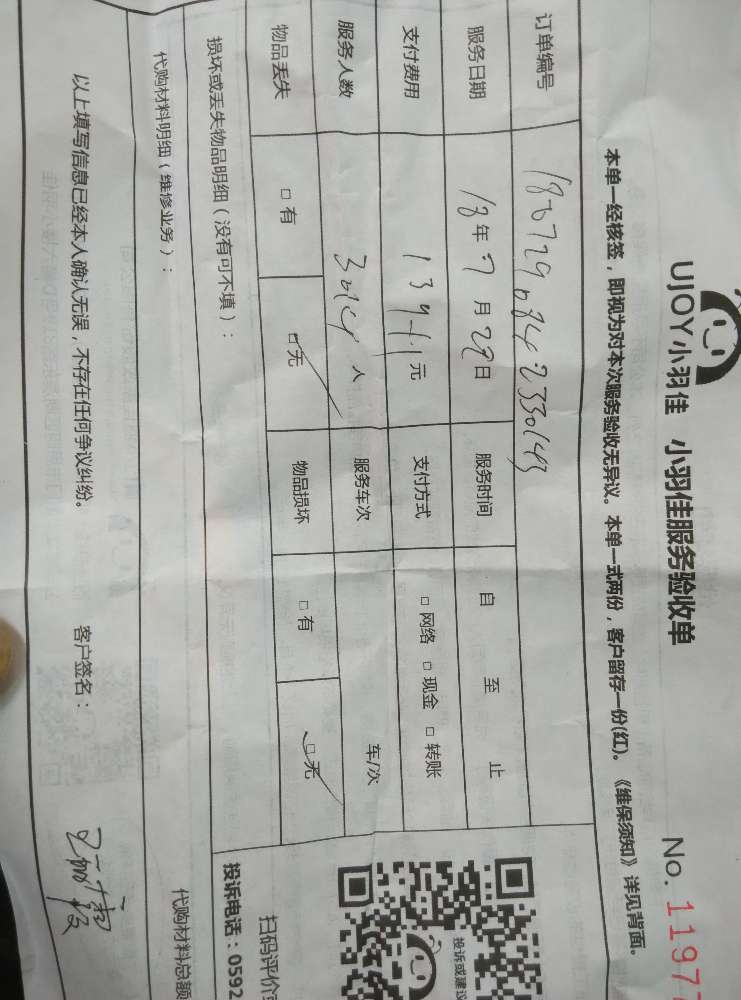 UJOY小羽佳 小羽佳服务验收单
No. 1197
本单一经核签，即视为对本次服务验收无异议。本单一式两份，客户留存一份(红)。《维保须知》详见背面。
订单编号
服务日期 18年7月29日 服务时间 自 至 止
支付费用 元 支付方式 □网络 □现金 □转账
服务人数 人 服务车次 车/次
物品丢失 □有 □无 物品损坏 □有 □无
损坏或丢失物品明细（没有可不填）：
代购材料明细（维修业务）： 代购材料总额
以上填写信息已经本人确认无误，不存在任何争议纠纷。 客户签名：
投诉或建议
扫码评价
投诉电话：0592